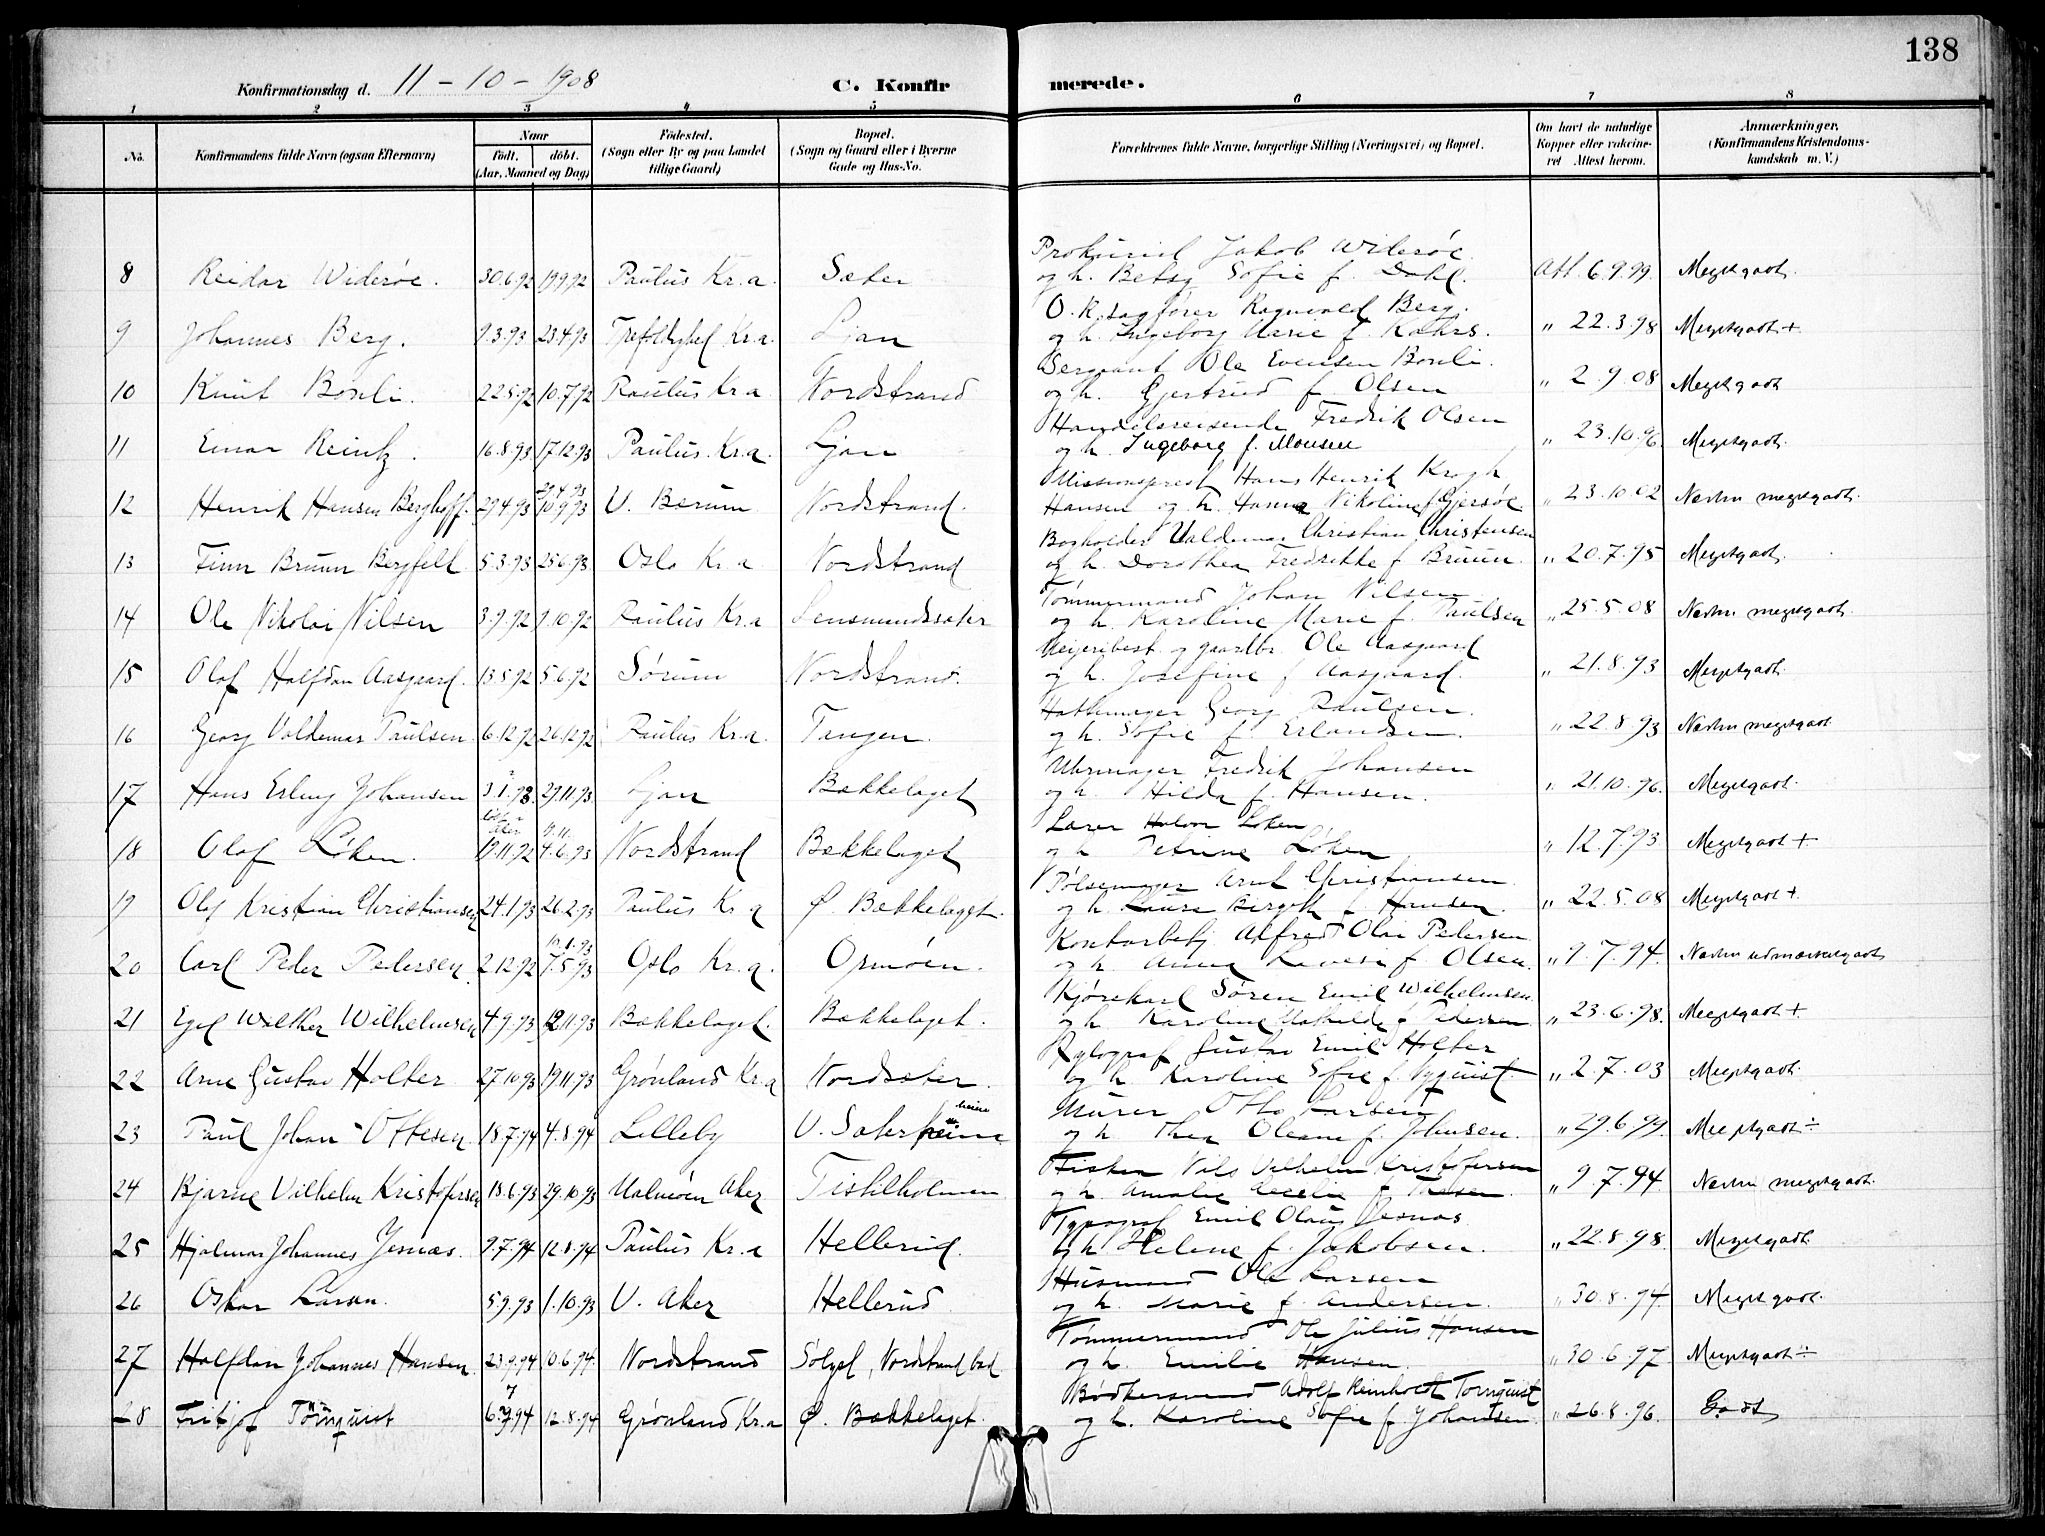 138
Konfirmationsdag d. 11 - 10 - 1908
C. Konfir merede.
1 2 3 4 5 6 7 8
No. Konfirmandens fulde Navn (ogsaa Efternavn) Naar födt, döbt. (Aar, Maaned og Dag) Födested. (Sogn eller By og paa Landet tillige Gaard) Bopæl. (Sogn og Gaard eller i Byerne Gade og Hus-No. Forældrenes fulde Navne, borgerlige Stilling (Næringsvei) og Bopæl. Om havt de naturlige Kopper eller vakcineret Attest herom. Anmærkninger, (Konfirmandens Kristendomskundskab m. V.)
Jakob Widerøe
8 Reidar Widerøe. 30.6.92 19.9.92 Paulus Kr.a. Sæter og h. Betsy Sofie f. Dahl. Att. 6.9.99. Megetgodt.
O.R.sagfører Ragnvald Berg.
9 Johannes Berg. 9.3.93 23.4.93 Kr.a. Ljan og h. Ingeborg Marie f. Kahrs. " 22.3.98 Megetgodt +
Sergeant Ole Evensen Bonli.
10 Knut Bonli. 22.5.92 10.7.92 Paulus Kr.a Nordstrand og h. Gjertrud f. Olsen " 2.9.08 Megetgodt
Handelsreisende Fredrik Olsen
11 Einar Reintz. 16.8.93 17.12.93 Paulus Kr.a. Ljan og h. Ingeborg f. Monsen " 23.10.96 Megetgodt.
Missionsprest Hans Henrik Krogh
12 Henrik Hansen Berghoff. 29.4.93 10.9.93 V. Bærum Nordstrand. Hansen og h. Hanna Nikoline f. Gjersøe. " 23.10.02 Næsten megetgodt.
Bogholder Valdemar Christian Christensen
13 Finn Bruun Bergfelt 5.3.93 25.6.93 Oslo Kr.a. Nordstrand og h. Dorothea Fredrikke f. Bruun. " 20.7.95 Megetgodt.
Tømmermand Johan Nilsen
14 Ole Nikolai Nilsen 3.9.92 9.10.92 Paulus Kr.a Sensmundsæter og h. Karoline Marie f. Paulsen " 25.5.08 Næsten megetgodt.
Meieribest. og gaardbr. Ole Aasgaard
15 Olaf Halfdan Aasgaard. 13.5.92 5.6.92 Sørum Nordstrand. og h. Josefine f. Aasgaard. " 21.8.93 Megetgodt.
Georg Paulsen.
16 Georg Valdemar Paulsen 6.12.92 26.12.92 Paulus Kr.a. Tangen. og h. Sofie f. Erlandsen. " 22.8.93 Næsten megetgodt
Uhrmager Fredrik Johansen
17 Hans Erling Johansen 3.1.93 29.11.93 Ljan Bækkelaget og h. Hilda f. Hansen. " 21.10.96. Megetgodt.
Lærer Halvor Løken
18 Olaf Løken. 19.11.92 4.6.93 Nordstrand Bækkelaget og h Petrine Løken " 12.7.93 Megetgodt +
Pølsemager Arnt Christiansen
19 Olaf Kristian Christiansen 24.1.93 26.2.93 Paulus Kr.a Ø. Bækkelaget. og h. Laura Bergith f. Hansen. " 22.5.08 Megetgodt +
Kontorbetj. Alfred Olai Pedersen
20 Carl Peder Pedersen 2.12.92 7.5.93 Oslo Kr.a. Ormøen. og h. Anna Lovise f. Olsen. " 9.7.94. Næsten udmærketgodt
Kjørekarl Søren Emil Wilhelmsen.
21 Egil Walther Wilhelmsen 4.9.93 12.11.93 Bækkelaget. Bækkelaget. og h. Karoline Mathilde f. Pedersen. " 23.6.98. Megetgodt +
Xylograf Gustav Emil Holter
22 Arne Gustav Holter 27.10.93 19.11.93 Grønland Kr.a Nordsæter. og h. Karoline Sofie f. Nyquist. " 2.7.03 Megetgodt.
Murer Otto Larsen
23 Paul Johan Ottesen 18.7.94 4.8.94 Lilleby V. Sæterheim og h. Thea Oleane f. Johnsen. " 29.6.99. Megetgodt ÷
Fisker Nils Vilhelm Kristofersen
24 Bjarne Vilhelm Kristofersen 13.6.93 29.10.93 Malmøen Aker Fiskholmen og h. Amalie f. " 9.7.94. Næsten megetgodt.
Typograf Emil Olaus Jesnæs
25 Hjalmar Johannes Jesnæs. 9.7.94 12.8.94 Paulus Kr.a Hellerud. og h. Helene f. Jakobsen. " 22.8.98. Megetgodt.
Husmand Ole Larsen
26 Oskar Larsen. 5.9.93 1.10.93 V. Aker Hellerud. og h. Marie f. Andersen. " 30.8.94. Megetgodt.
Tømmermand Ole Julius Hansen
27 Halfdan Johannes Hansen 23.9.94 10.6.94. Nordstrand Solgl, Nordstrand bad og h. Emilie Hansen. " 30.6.97 Megetgodt ÷
Bødkersvend Adolf Reinholdt Tornquist
28 Fritjof Törnquist 6.7.94 12.8.94 Grønland Kr.a Ø. Bækkelaget. og h. Karoline Sofie f. Johansen. " 26.8.96. Godt